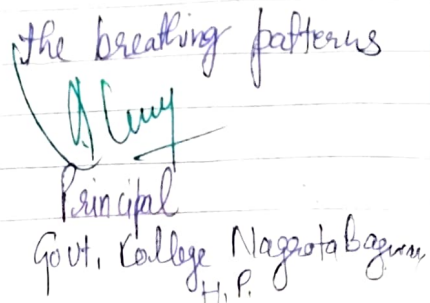 the breathing patterns
Principal
Govt. College Nagrota Bagwan
H.P.